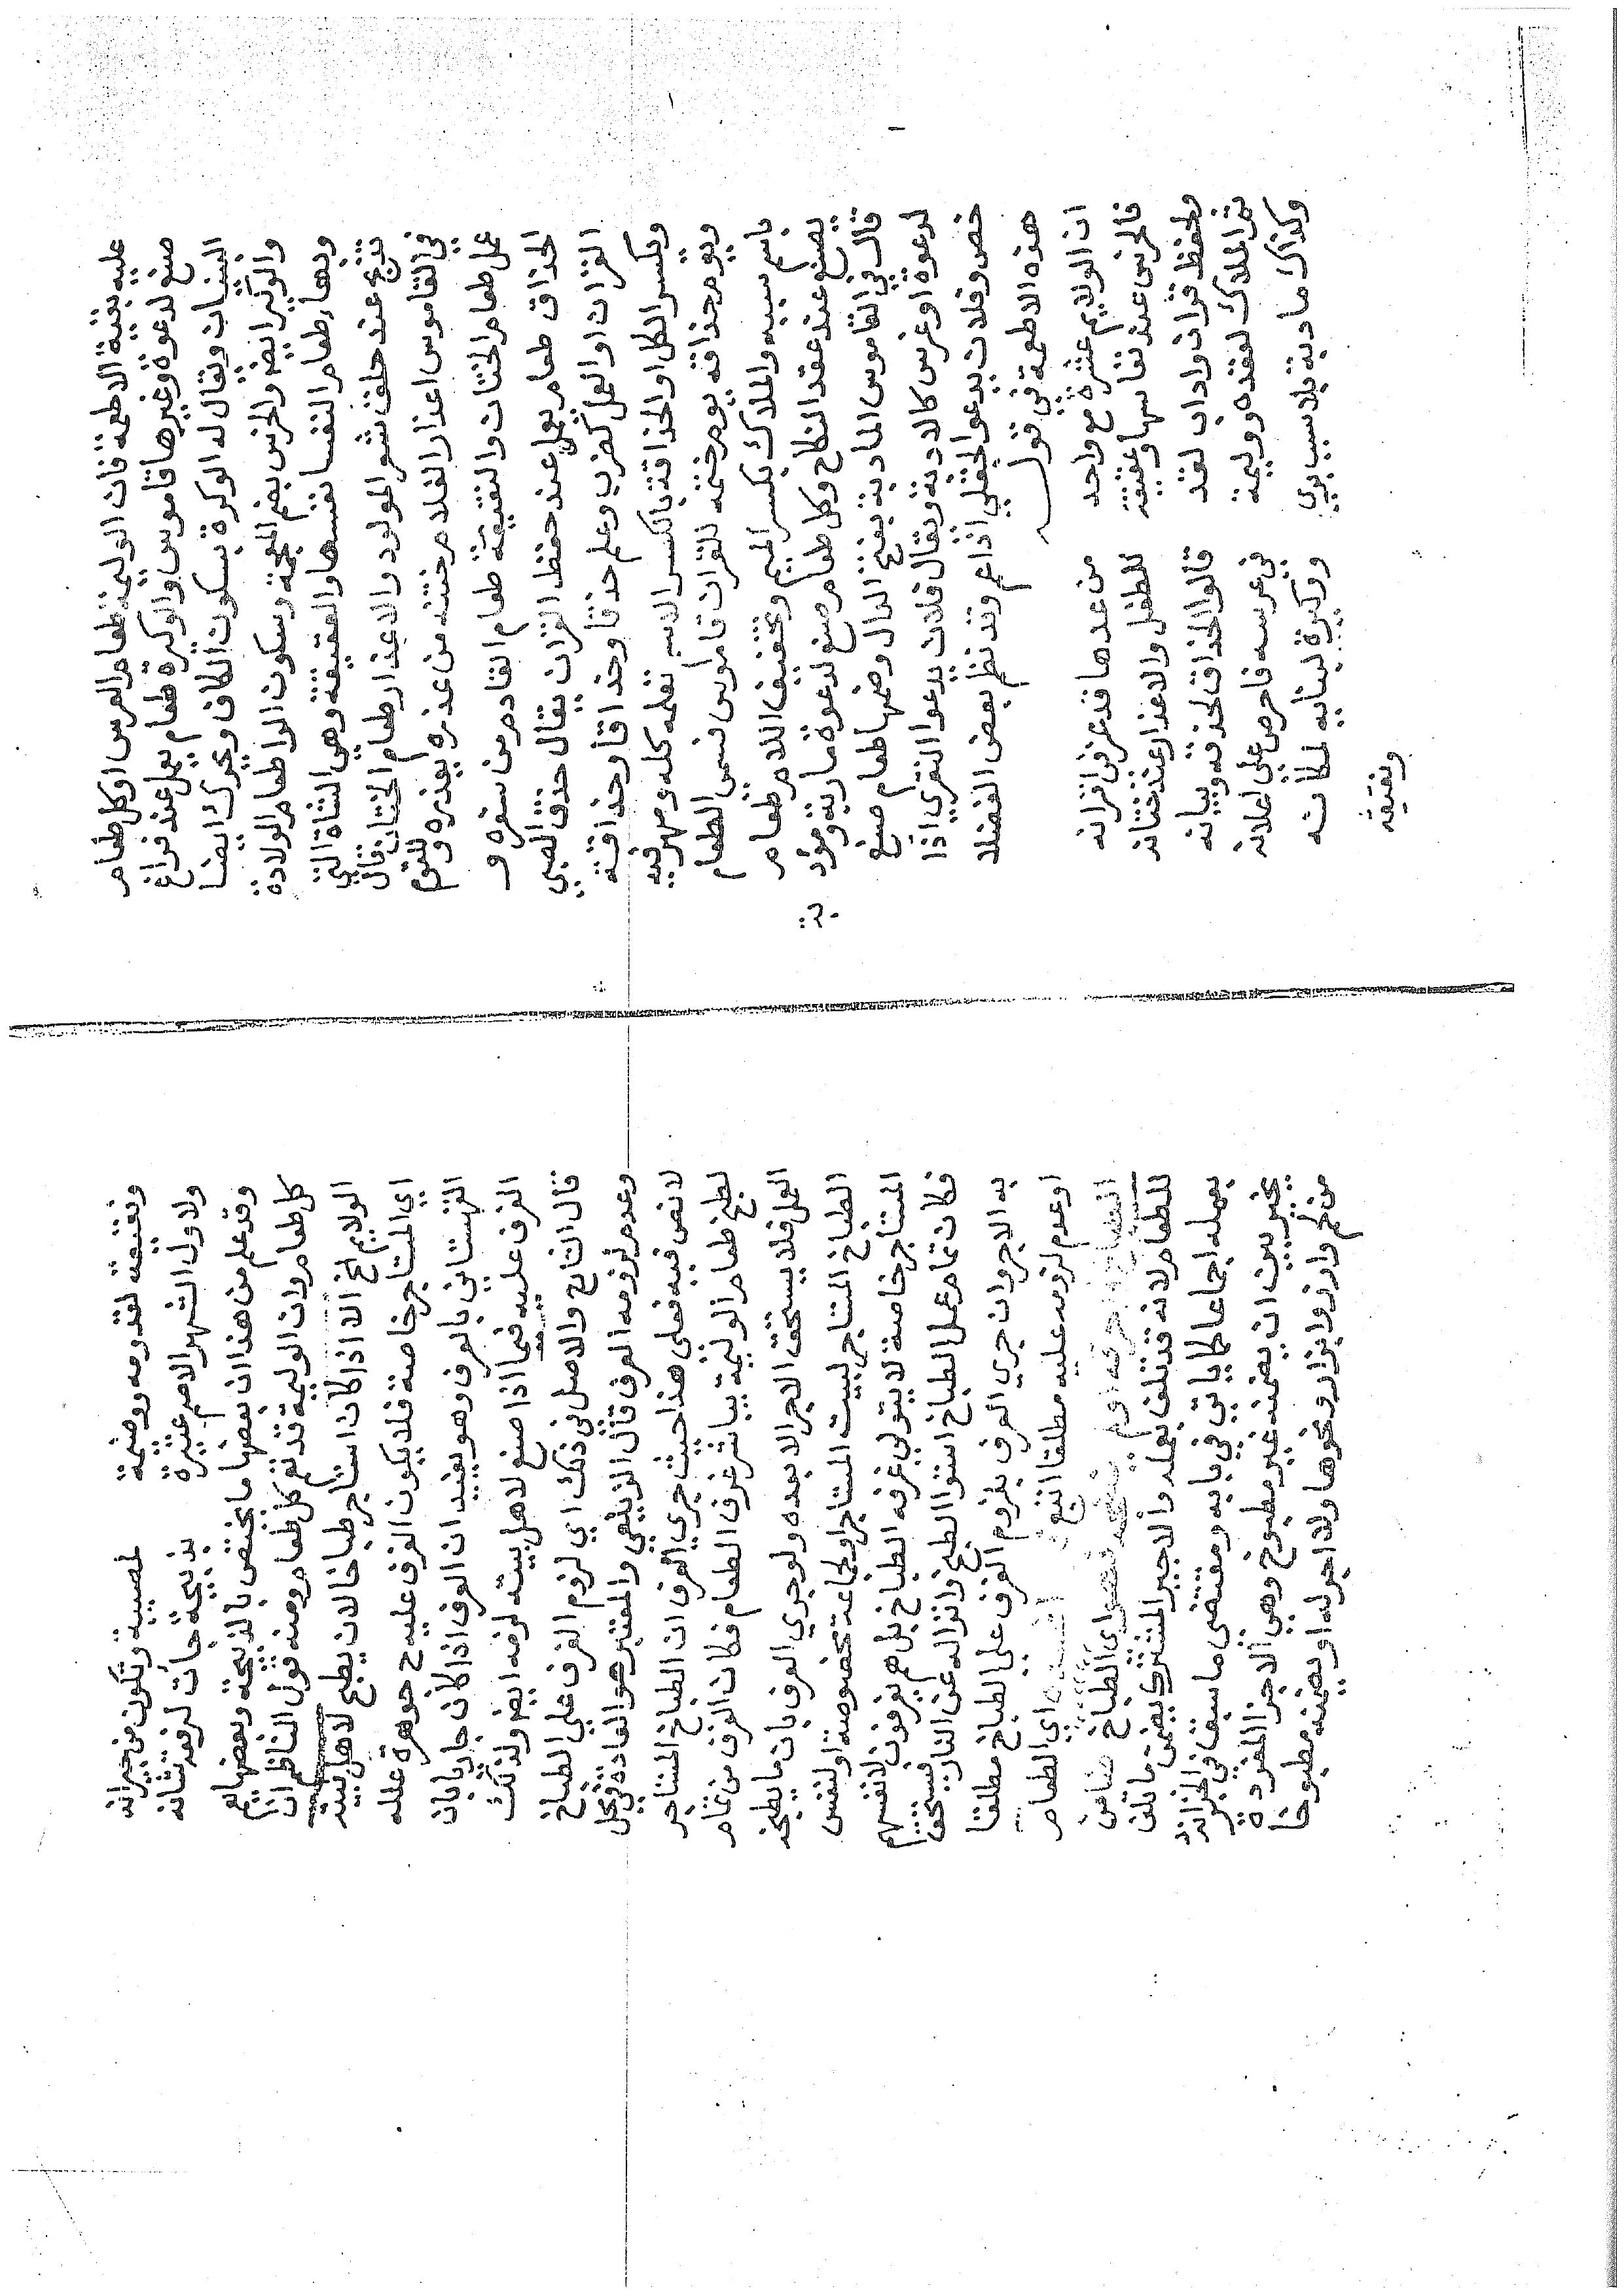 عليه بقية الاطعمة فان الوليمة طعام العرس او كل طعام
صنع لدعوة وغيرها قاموس والوكيرة طعام يعمل عند فراغ
البنيان ويقال له الوكرة بسكون الكاف ويحرك ايضا
والوكير ايضا والخرس بضم المعجمة وسكون الرا طعام الولادة
وبهاء طعام النفسا نفسها والعقيقة وهي الشاة التي
تذبح عند حلق شعر المولود والاعذار طعام الختان قال
في القاموس اعذار الغلام ختنه من عذره يعذره وللقوم
عمل طعام الختان والنقيعة طعام القادم من سفره و
الحذاق طعام يعمل عند حفظ القران يقال حذق الصبي
القران او العمل كضرب وعلم حذقا وحذاقا وحذاقة
ويكسر الكل او الحذاقة بالكسر الاسم تعلمه كله ومهر فيه
ويوم حذاقه يوم ختمه للقران قاموس فسمى الطعام
باسم سببه والملاك بكسر الميم وتخفيف اللام طعام
يصنع عند عقد النكاح وكل طعام صنع لدعوة مادبة ومؤد
بة
قال في القاموس المادبة بفتح الدال وضمها طعام صنع
لدعوة او عرس كالادبة ويقال فلان يدعوا النقرى اذا
خص وفلان يدعوا الجفلى اذا عم وقد نظم بعض الفضلا
هذه الاطعمة في قوله
ان الولايم عشرة مع واحد من عدها قد عز في اقرانه
فالخرس عند نفاسها وعقيقة للطفل والاعذار عند ختانه
ولحفظ قران واداب لقد قالوا الحذاق لحذقه وبيانه
ثم الملاك لعقده ووليمة في عرسه فاحرص على اعلانه
وكذاك مادبة بلا سبب يرى ووكيرة لبنايه لمكانه
ونقيعة
ونقيعة لقدومه ووضيمة لمصيبة وتكون من جيرانه
ولاول الشهر الاصم عتيرة بذبيحة جاءت لرفعة شانه
وقد علم من هذا ان بعضها ما يختص بالذبيحة وبعضها يعم
كل طعام وان الوليمة قد تعم كل طعام ومنه قول الناظم ان
الولايم الخ الا اذا كان استاجر طباخا لان يطبخ لاهل بيته
اي المستاجر خاصة فلا يكون الغرف عليه ح جوهرة علله
القهستاني بالعرف وهو يفيد ان العرف اذا كان جاريا بان
الغرف عليه فيما اذا صنع لاهل بيته لزمه ايضا ولذلك
قال الشارح والاصل في ذلك اي لزوم الغرف على الطباخ
وعدم لزومه العرف قال الزيلعي والمعتبر هو العادة في كل
لا نص فيه فعلى هذا حيث جرى العرف ان الطباخ المستاجر
لطبخ طعام الوليمة يباشر غرف الطعام فكان الغرف من تمام
العمل فلا يستحق الاجر الا بعده ولو جرى العرف بان ما يطبخه
الطباخ المستاجر لبيت المستاجر او لجماعة مخصوصة او لنفس
المستاجر خاصة لا يتولى غرفه الطباخ بل هم يغرفون لانفسهم
فكان تمام عمل الطباخ استوا الطبخ وانزاله عن النار فيستحق
به الاجر وان جرى العرف بلزوم الغرف على الطباخ مطلقا
او عدم لزومه عليه مطلقا اتبع اي الطعام
الطباخ فهو اي الطباخ ضامن
للطعام لانه قد تلف بعمله والاجير المشترك يضمن ما تلف
بعمله اجماعا كما ياتي في بابه ومقتضى ما سبق في الخبز انه
يخير بين ان يضمنه غير مطبوخ وهي الاجزا المفردة
من لحم وارز وابزار ونحوها ولا اجر له او يضمنه مطبوخا